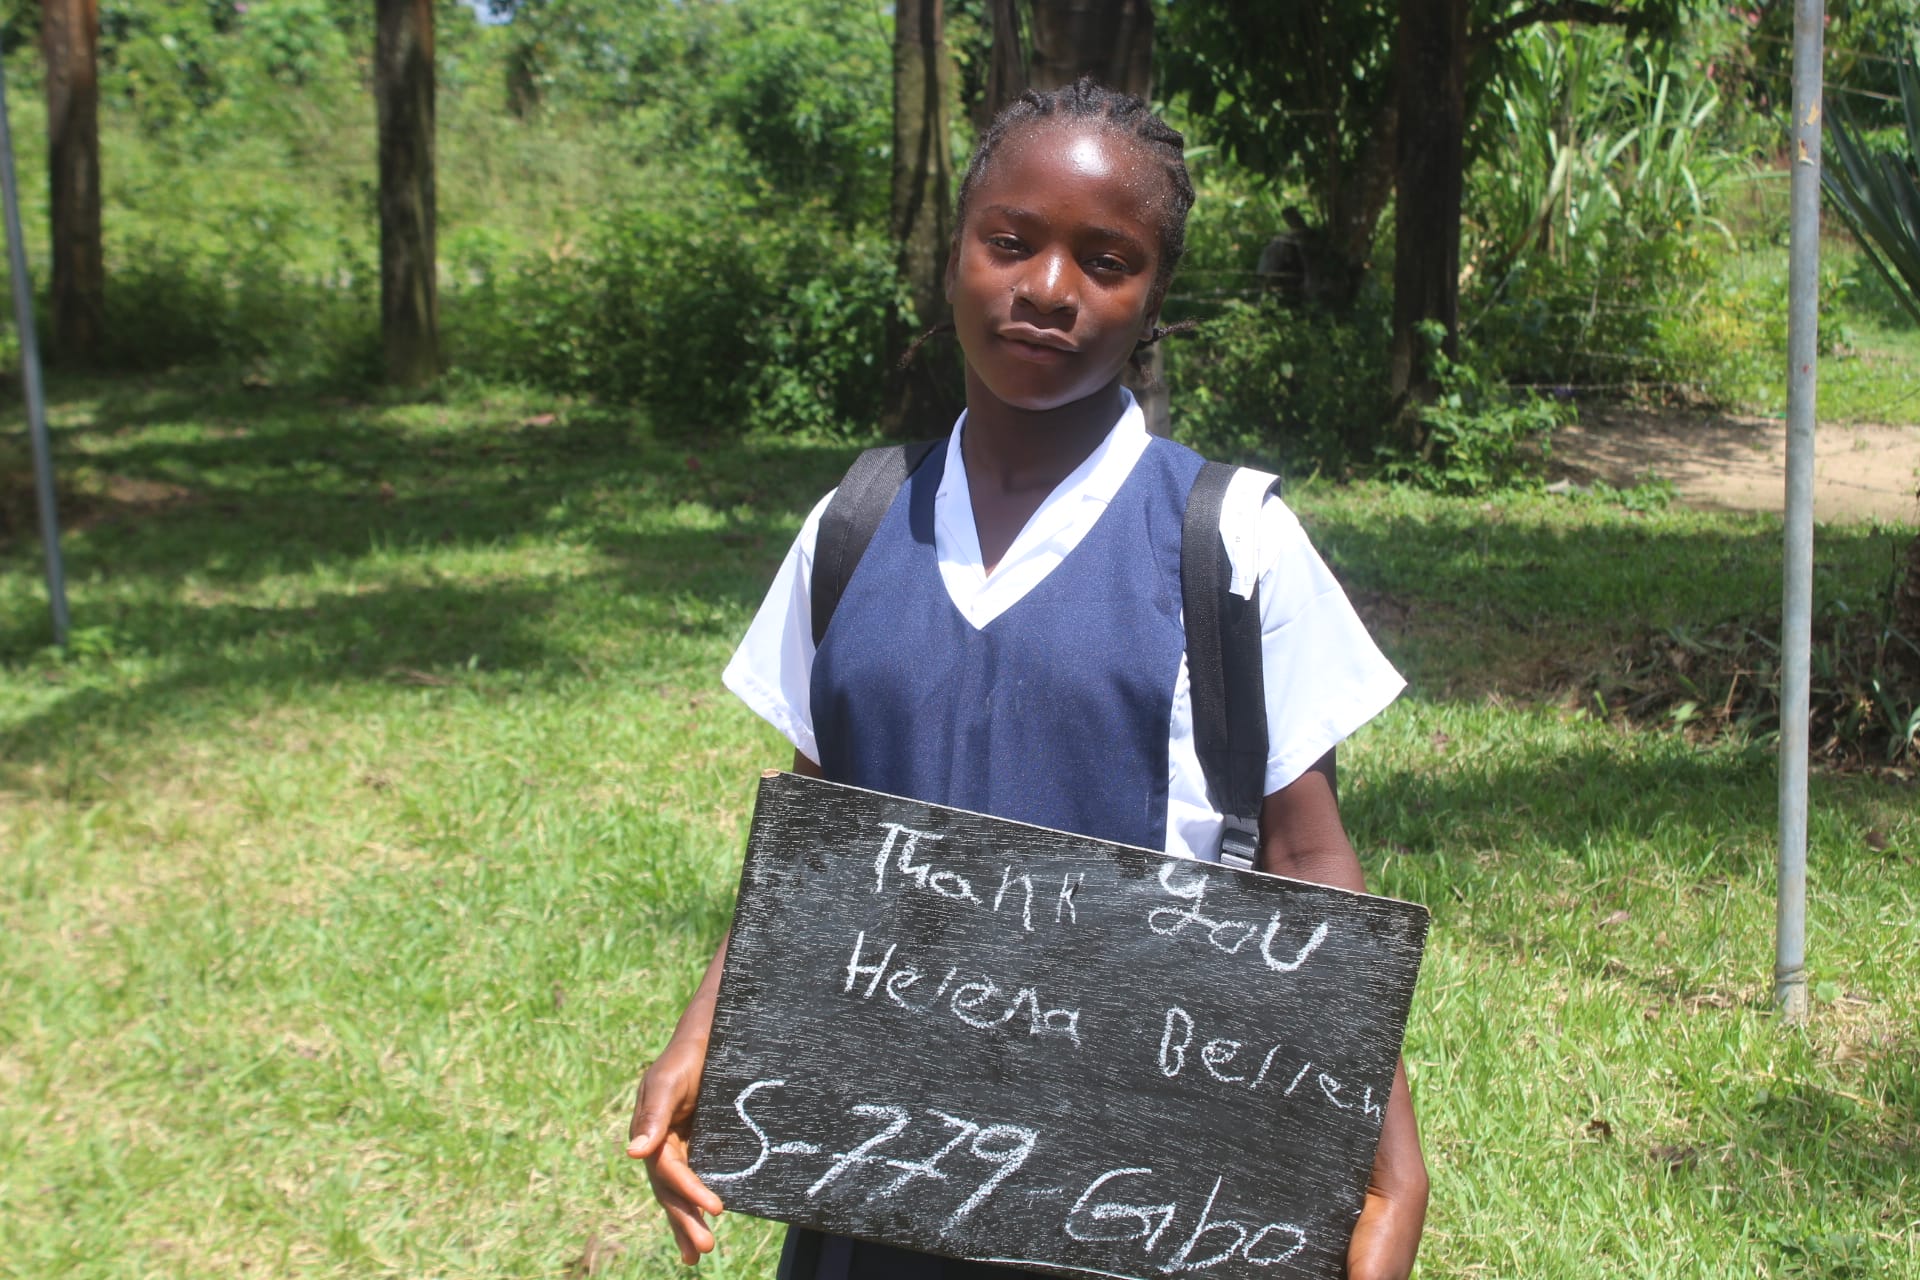 Thank You
Helena Bellen
S-779-Gbo